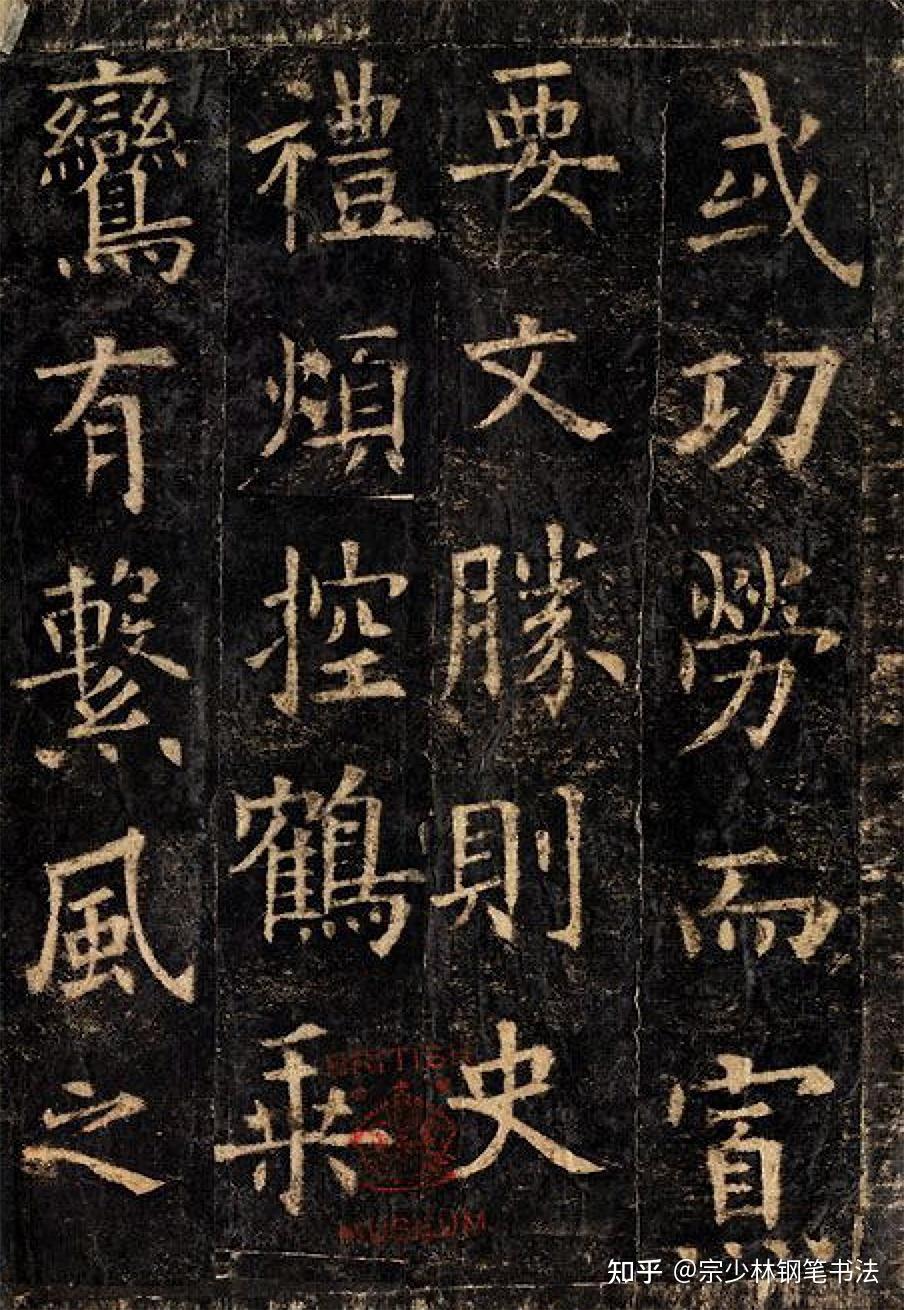 或功勞而寡
要文勝則史
禮煩控鶴乘
鸞有繫風之
BRITISH
MUSEUM
知乎 @宗少林钢笔书法